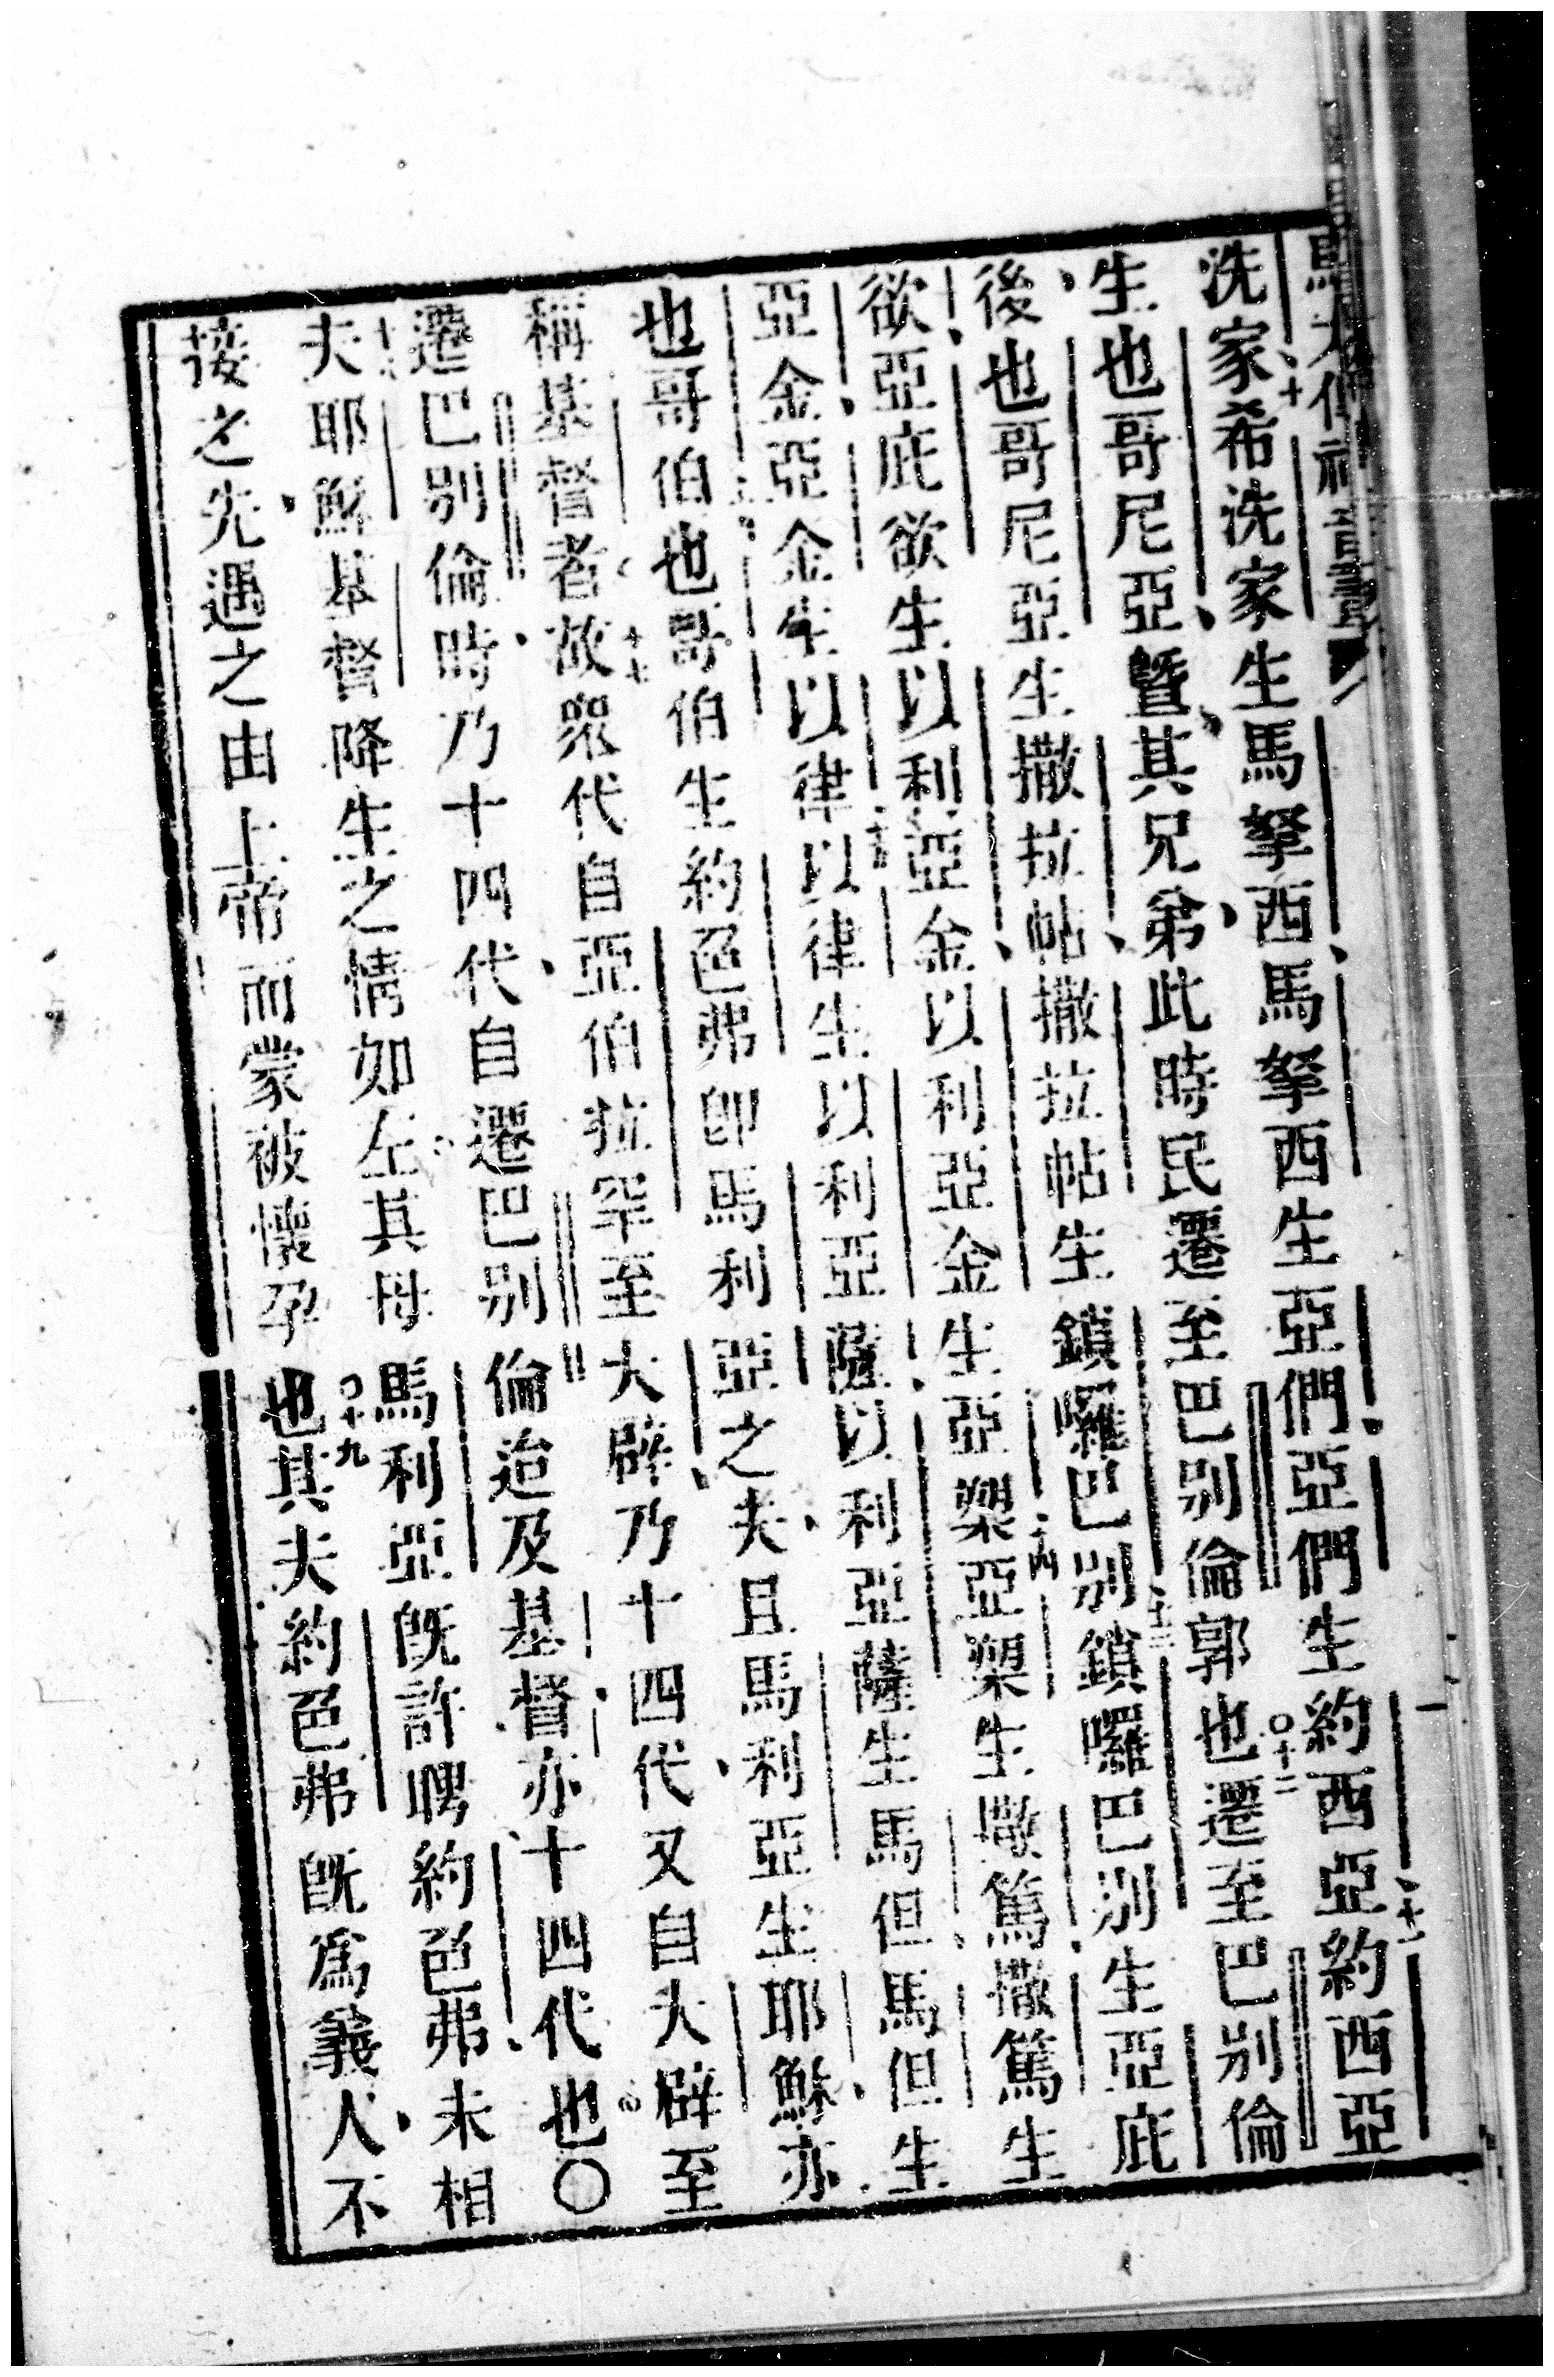 馬太傳福音書
洗家希洗家生馬拏西馬拏西生亞們亞們生約西亞十一約西亞
生也哥尼亞暨其兄弟此時民遷至巴別倫郭也〇十二遷至巴別倫
後也哥尼亞生撒拉帖撒拉帖生鎖囉巴別十三鎖囉巴別生亞庇
欲亞庇欲生以利亞金以利亞金生亞槊十四亞槊生撒篤撒篤生
亞金亞金生以律十五以律生以利亞薩以利亞薩生馬但馬但生
也哥伯也哥伯生約色弗即馬利亞之夫且馬利亞生耶穌亦
稱基督者十七故眾代自亞伯拉罕至大辟乃十四代又自大辟至
遷巴別倫時乃十四代自遷巴別倫迨及基督亦十四代也〇
夫耶穌基督降生之情如左其母馬利亞既許聘約色弗未相
接之先遇之由上帝而蒙被懷孕也〇十九其夫約色弗既為義人不